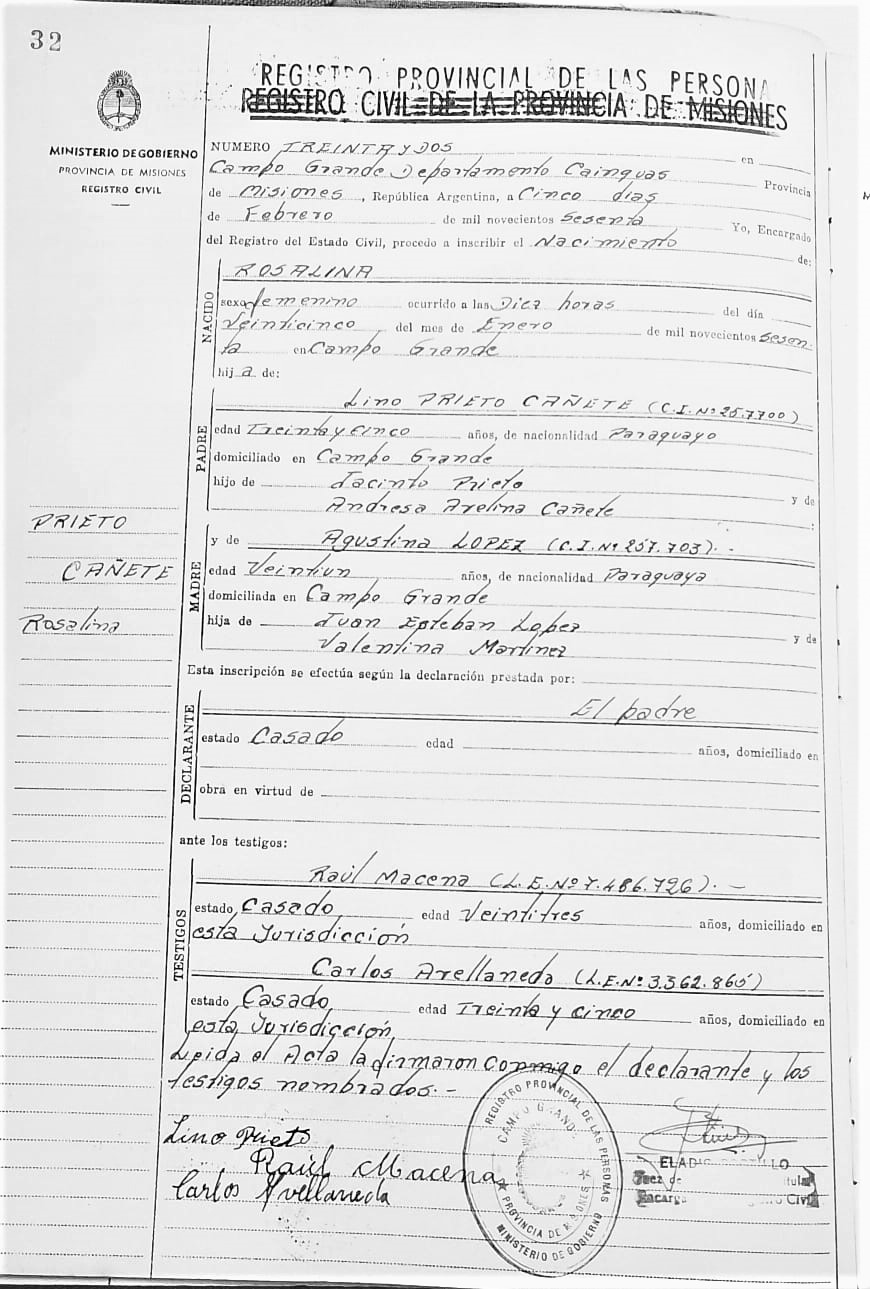 32
REGISTRO PROVINCIAL DE LAS PERSONA
REGISTRO CIVIL DE LA PROVINCIA DE MISIONES
MINISTERIO DE GOBIERNO
PROVINCIA DE MISIONES
REGISTRO CIVIL
NUMERO TREINTA y DOS en
Campo Grande Departamento Cainguas Provincia
de Misiones, República Argentina, a Cinco días
de Febrero de mil novecientos Sesenta Yo, Encargado
del Registro del Estado Civil, procedo a inscribir el Nacimiento de:
NACIDO
ROSALINA
sexo femenino ocurrido a las Diez horas del día
Veinticinco, del mes de Enero de mil novecientos Sesen
ta en Campo Grande
hija de:
PADRE
Lino PRIETO CAÑETE (C.I.Nº 257.700)
edad Treinta y Cinco años, de nacionalidad Paraguayo
domiciliado en Campo Grande
hijo de Jacinto Prieto y de
Andresa Avelina Cañete :
PRIETO
CAÑETE
Rosalina
MADRE
y de Agustina LOPEZ (C.I.Nº 257.703).-
edad Veintiun años, de nacionalidad Paraguaya
domiciliada en Campo Grande
hija de Juan Esteban Lopez y de
Valentina Martinez
Esta inscripción se efectúa según la declaración prestada por:
DECLARANTE
El padre
estado Casado edad años, domiciliado en
obra en virtud de
ante los testigos:
TESTIGOS
Raúl Macena (L.E.Nº 7.486.726).-
estado Casado edad Veintitres años, domiciliado en
esta Jurisdicción
Carlos Avellaneda (L.E.Nº 3.362.865)
estado Casado edad Treinta y cinco años, domiciliado en
esta Jurisdicción
Leida el Acta la firmaron conmigo el declarante y los
testigos nombrados.-
Lino Prieto
Raúl Macena
Carlos Avellaneda
REGISTRO PROVINCIAL DE LAS PERSONAS
CAMPO GRANDE
PROVINCIA DE MISIONES
MINISTERIO DE GOBIERNO
ELADIO
Juez de
Civil